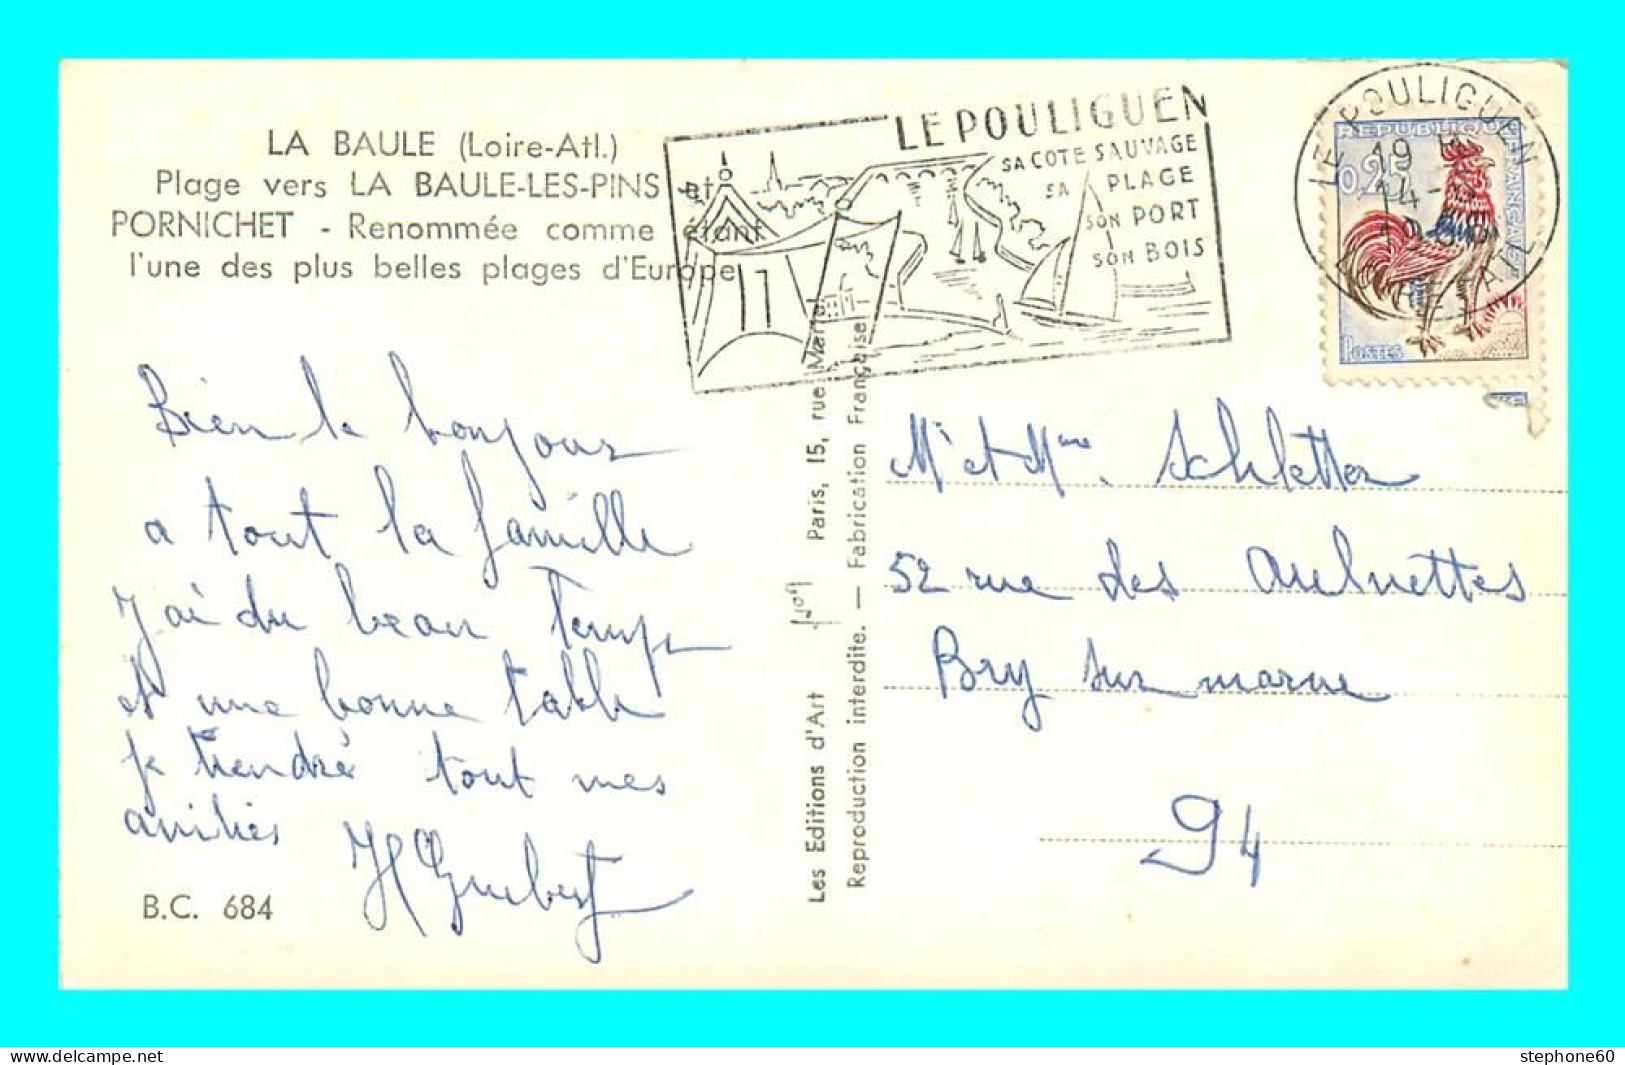 LA BAULE (Loire-Atl.)
Plage vers LA BAULE-LES-PINS et
PORNICHET - Renommée comme étant
l'une des plus belles plages d'Europe
LE POULIGUEN
SA COTE SAUVAGE
SA PLAGE
SON PORT
SON BOIS
LE POULIGUEN
19 H
14 -
REPUBLIQUE
FRANÇAISE
0,25
POSTES
Bien le bonjour
a tout la famille
J'ai du beau Temps
et une bonne table
je tiendré tout mes
amitiés
H Guibert
B.C. 684
Les Editions d'Art Paris, 15, rue Martel
Reproduction interdite. — Fabrication Française
Mr et Mme Schletter
52 rue des Aulnettes
Bry sur marne
94
delcampe.net
stephone60